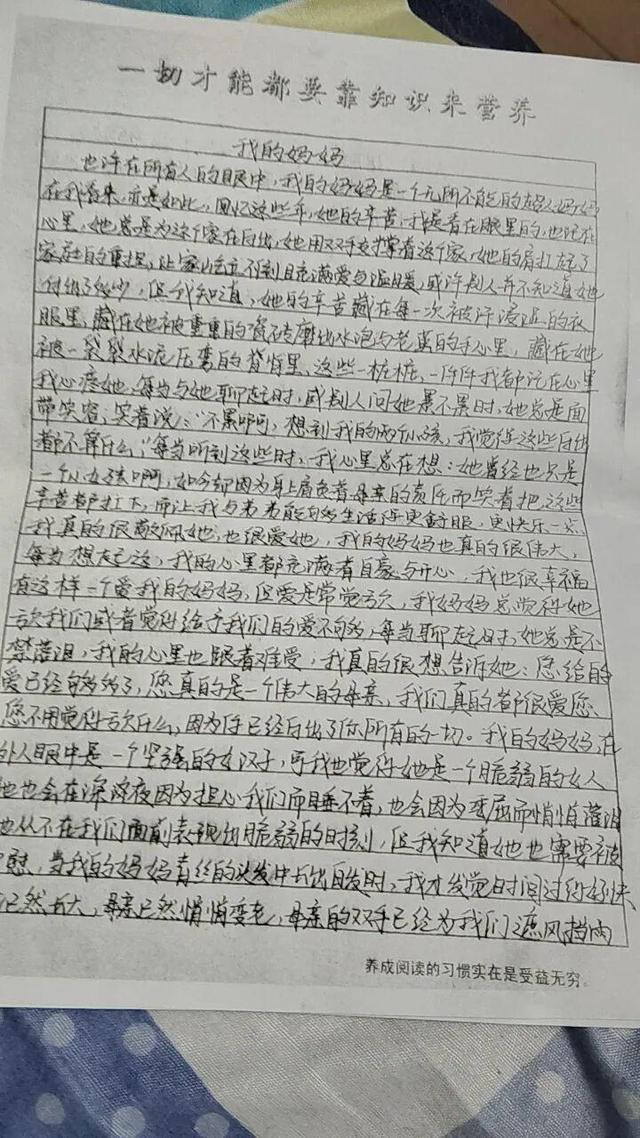 一切才能都要靠知识来营养
我的妈妈
也许在所有人的眼中，我的妈妈是一个无所不能的超人妈妈
在我看来，亦是如此，回忆这些年，她的辛苦，我是看在眼里的，也记在
心里，她总是为这个家在付出，她用双手支撑着这个家，她的肩扛起了
家庭的重担，让家庭充满爱与温暖，或许别人并不知道她
付出了多少，但我知道，她的辛苦藏在每一次被汗浸湿的衣
服里，藏在她被重重的瓷砖磨出水泡与老茧的手心里，藏在她
被一袋袋水泥压弯的背脊里、这些一桩桩、一件件我都记在心里
我心疼她，每当与她聊起时，或别人问她累不累时，她总是面
带笑容，笑着说："不累啊，想到我的两个小孩，我觉得这些付出
都不算什么，"每当听到这些时，我心里总在想：她曾经也只是
一个小女孩啊，如今却因为身上肩负着母亲的责任而笑着把这些
辛苦都扛下，而让我与弟弟能够生活得更舒服，更快乐一点
我真的很敬佩她，也很爱她，我的妈妈也真的很伟大，
每当想起这，我的心里都充满着自豪与开心，我也很幸福
有这样一个爱我的妈妈，但爱是常觉亏欠，我妈妈总觉得她
亏欠我们或者觉得给予我们的爱不够，每当聊起时，她总是不
禁落泪，我的心里也跟着难受，我真的很想告诉她：您给的
爱已经够多了，您真的是一个伟大的母亲，我们真的都很爱您、
您不用觉得亏欠什么，因为你已经付出了你所有的一切。我的妈妈，在
外人眼中是一个坚强的女汉子，可我也觉得她是一个脆弱的女人
她也会在深夜因为担心我们而睡不着，也会因为委屈而悄悄落泪
她从不在我们面前表现出脆弱的时刻，但我知道她也需要被
慰，当我的妈妈青丝的头发中长出白发时，我才发觉时间过得好快
已然长大，母亲已然悄悄变老，母亲的双手已经为我们遮风挡雨
养成阅读的习惯实在是受益无穷。